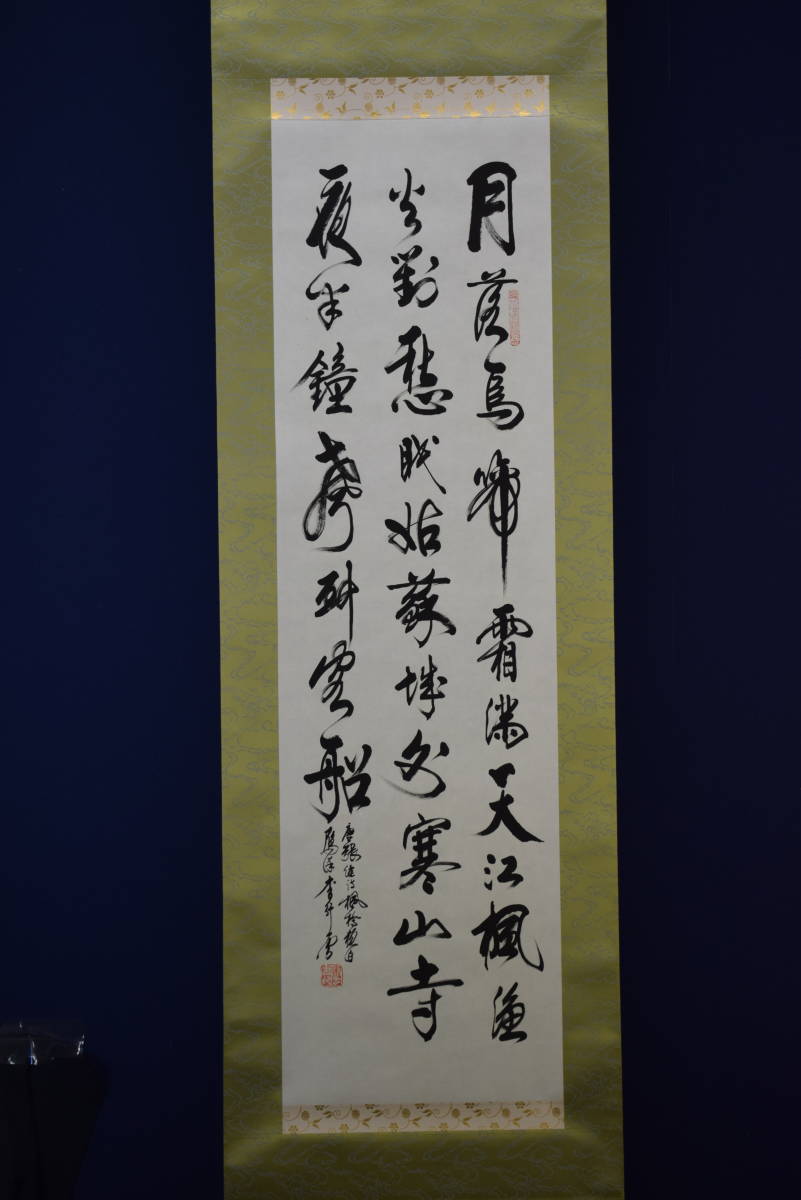 月落烏啼霜滿天江楓漁
火對愁眠姑蘇城外寒山寺
夜半鐘聲到客船
唐張繼詩楓橋夜泊
李